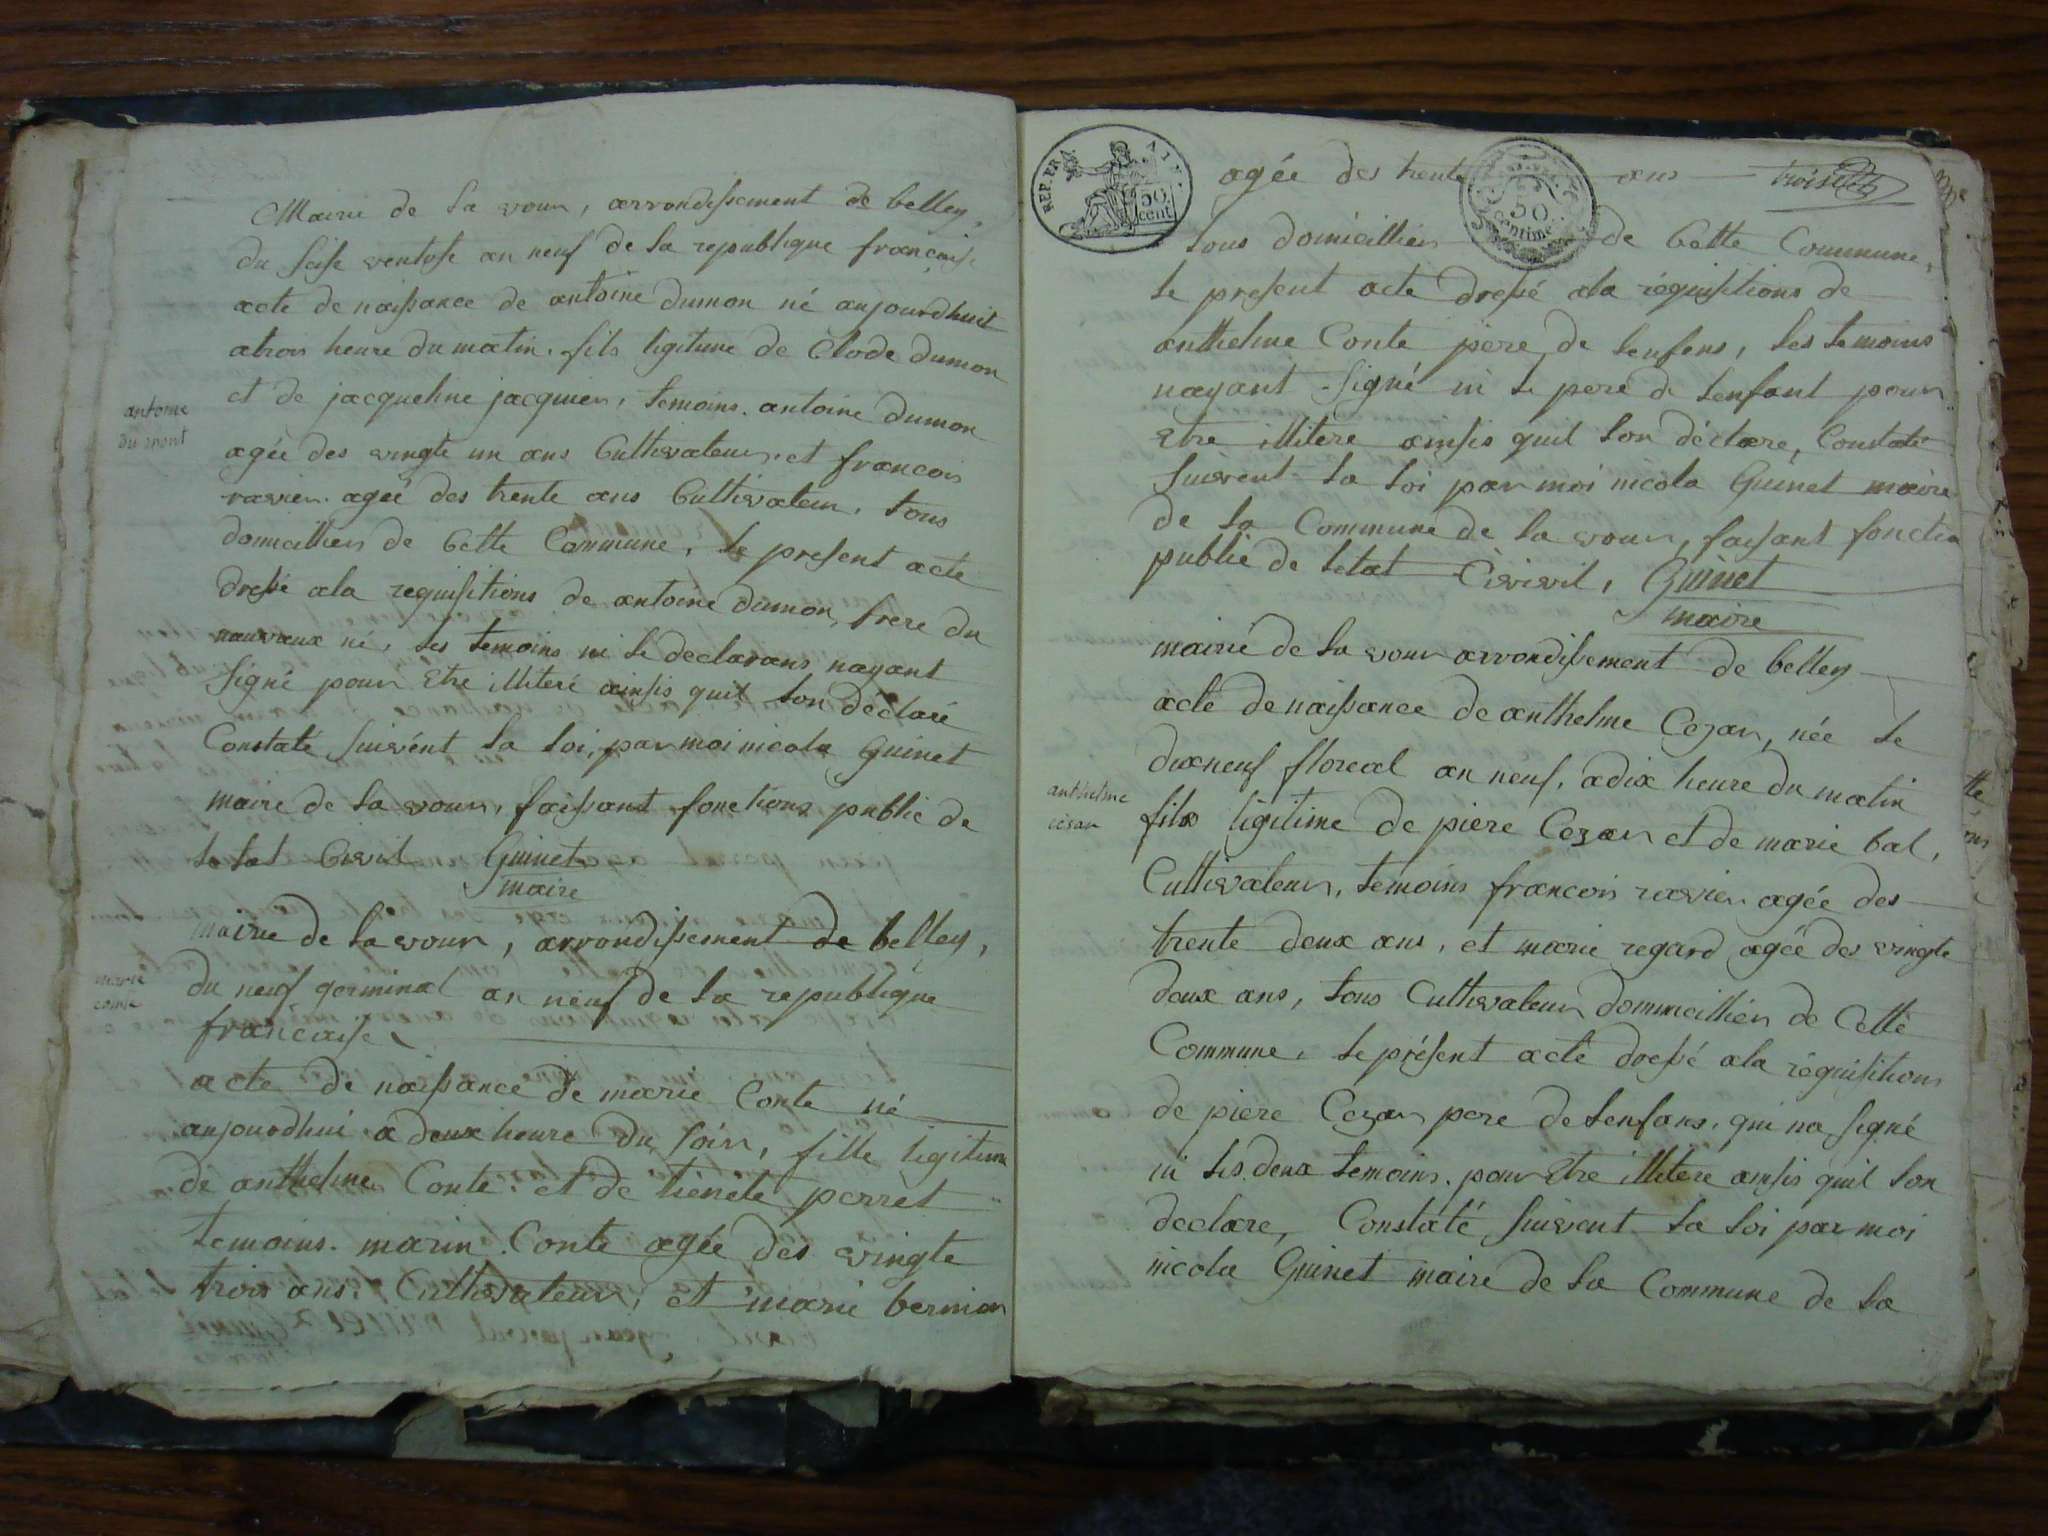 Mairie de La vour, arrondissement de belley,
du seise ventose an neuf de la republique francaise
acte de naissance de antoine dumon né aujourdhuit
atrois heure du matin. fils ligitime de Clode dumon
et de jacqueline jacquier, temoins. antoine dumon
antoine
du mont
agée des vingte un ans Cultivateur. et francois
ravier. agée des trente ans Cultivateur, tous
domicillier de Cette Commune, le present acte
dressé ala requisitions de antoine dumon, frere du
nouveaux né, les temoins ni le declarans nayant
signé pour Etre illiteré ainsis quil lon déclaré
Constaté suivént la loi, par moi nicola Guinet
maire de la vour, faissant fonctions public de
letat Civil Guinet
maire
mairie de la vour, arrondissement de belley,
marie
conte
du neuf germinal an neuf de la republique
francaise
acte de naissance de marie Conte né
aujourdhui a deux heure du soir, fille ligitime
de anthelme Conte. et de perret
temoins. marin Conte agée des vingte
trois ans. Cultivateur, et marie bernion
REP. FRA. AIN
50
cent
agée des trente ans
50
centime
tous domicillier de Cette Commune,
le present acte dressé ala réquisitions de
anthelme Conte pere de lenfens, les temoins
nayant signé ni le pere de lenfant pour
Etre illitere ainsis quil lon déclare, Constaté
suivent la loi par moi nicola Guinet maire
de la Commune de la vour, faisant fonction
public de letat Civivil, Guinet
maire
mairie de la vour arrondissement de belley
acte de naissance de anthelme Cezar, née le
dixneuf floreal an neuf, adix heure du matin
anthelme
cesar
fils ligitime de piere Cezar et de marie bal,
Cultivateur, temoins francois ravier agée des
trente deux ans, et marie regard agée des vingte
deux ans, tous Cultivateur dommicillier de Cette
Commune, le présent acte dressé ala réquisitions
de piere Cezar pere de lenfans, qui na signé
ni les deux temoins. pour Etre illitere ainsis quil lon
declare, Constaté suivent la loi par moi
nicola Guinet maire de la Commune de la